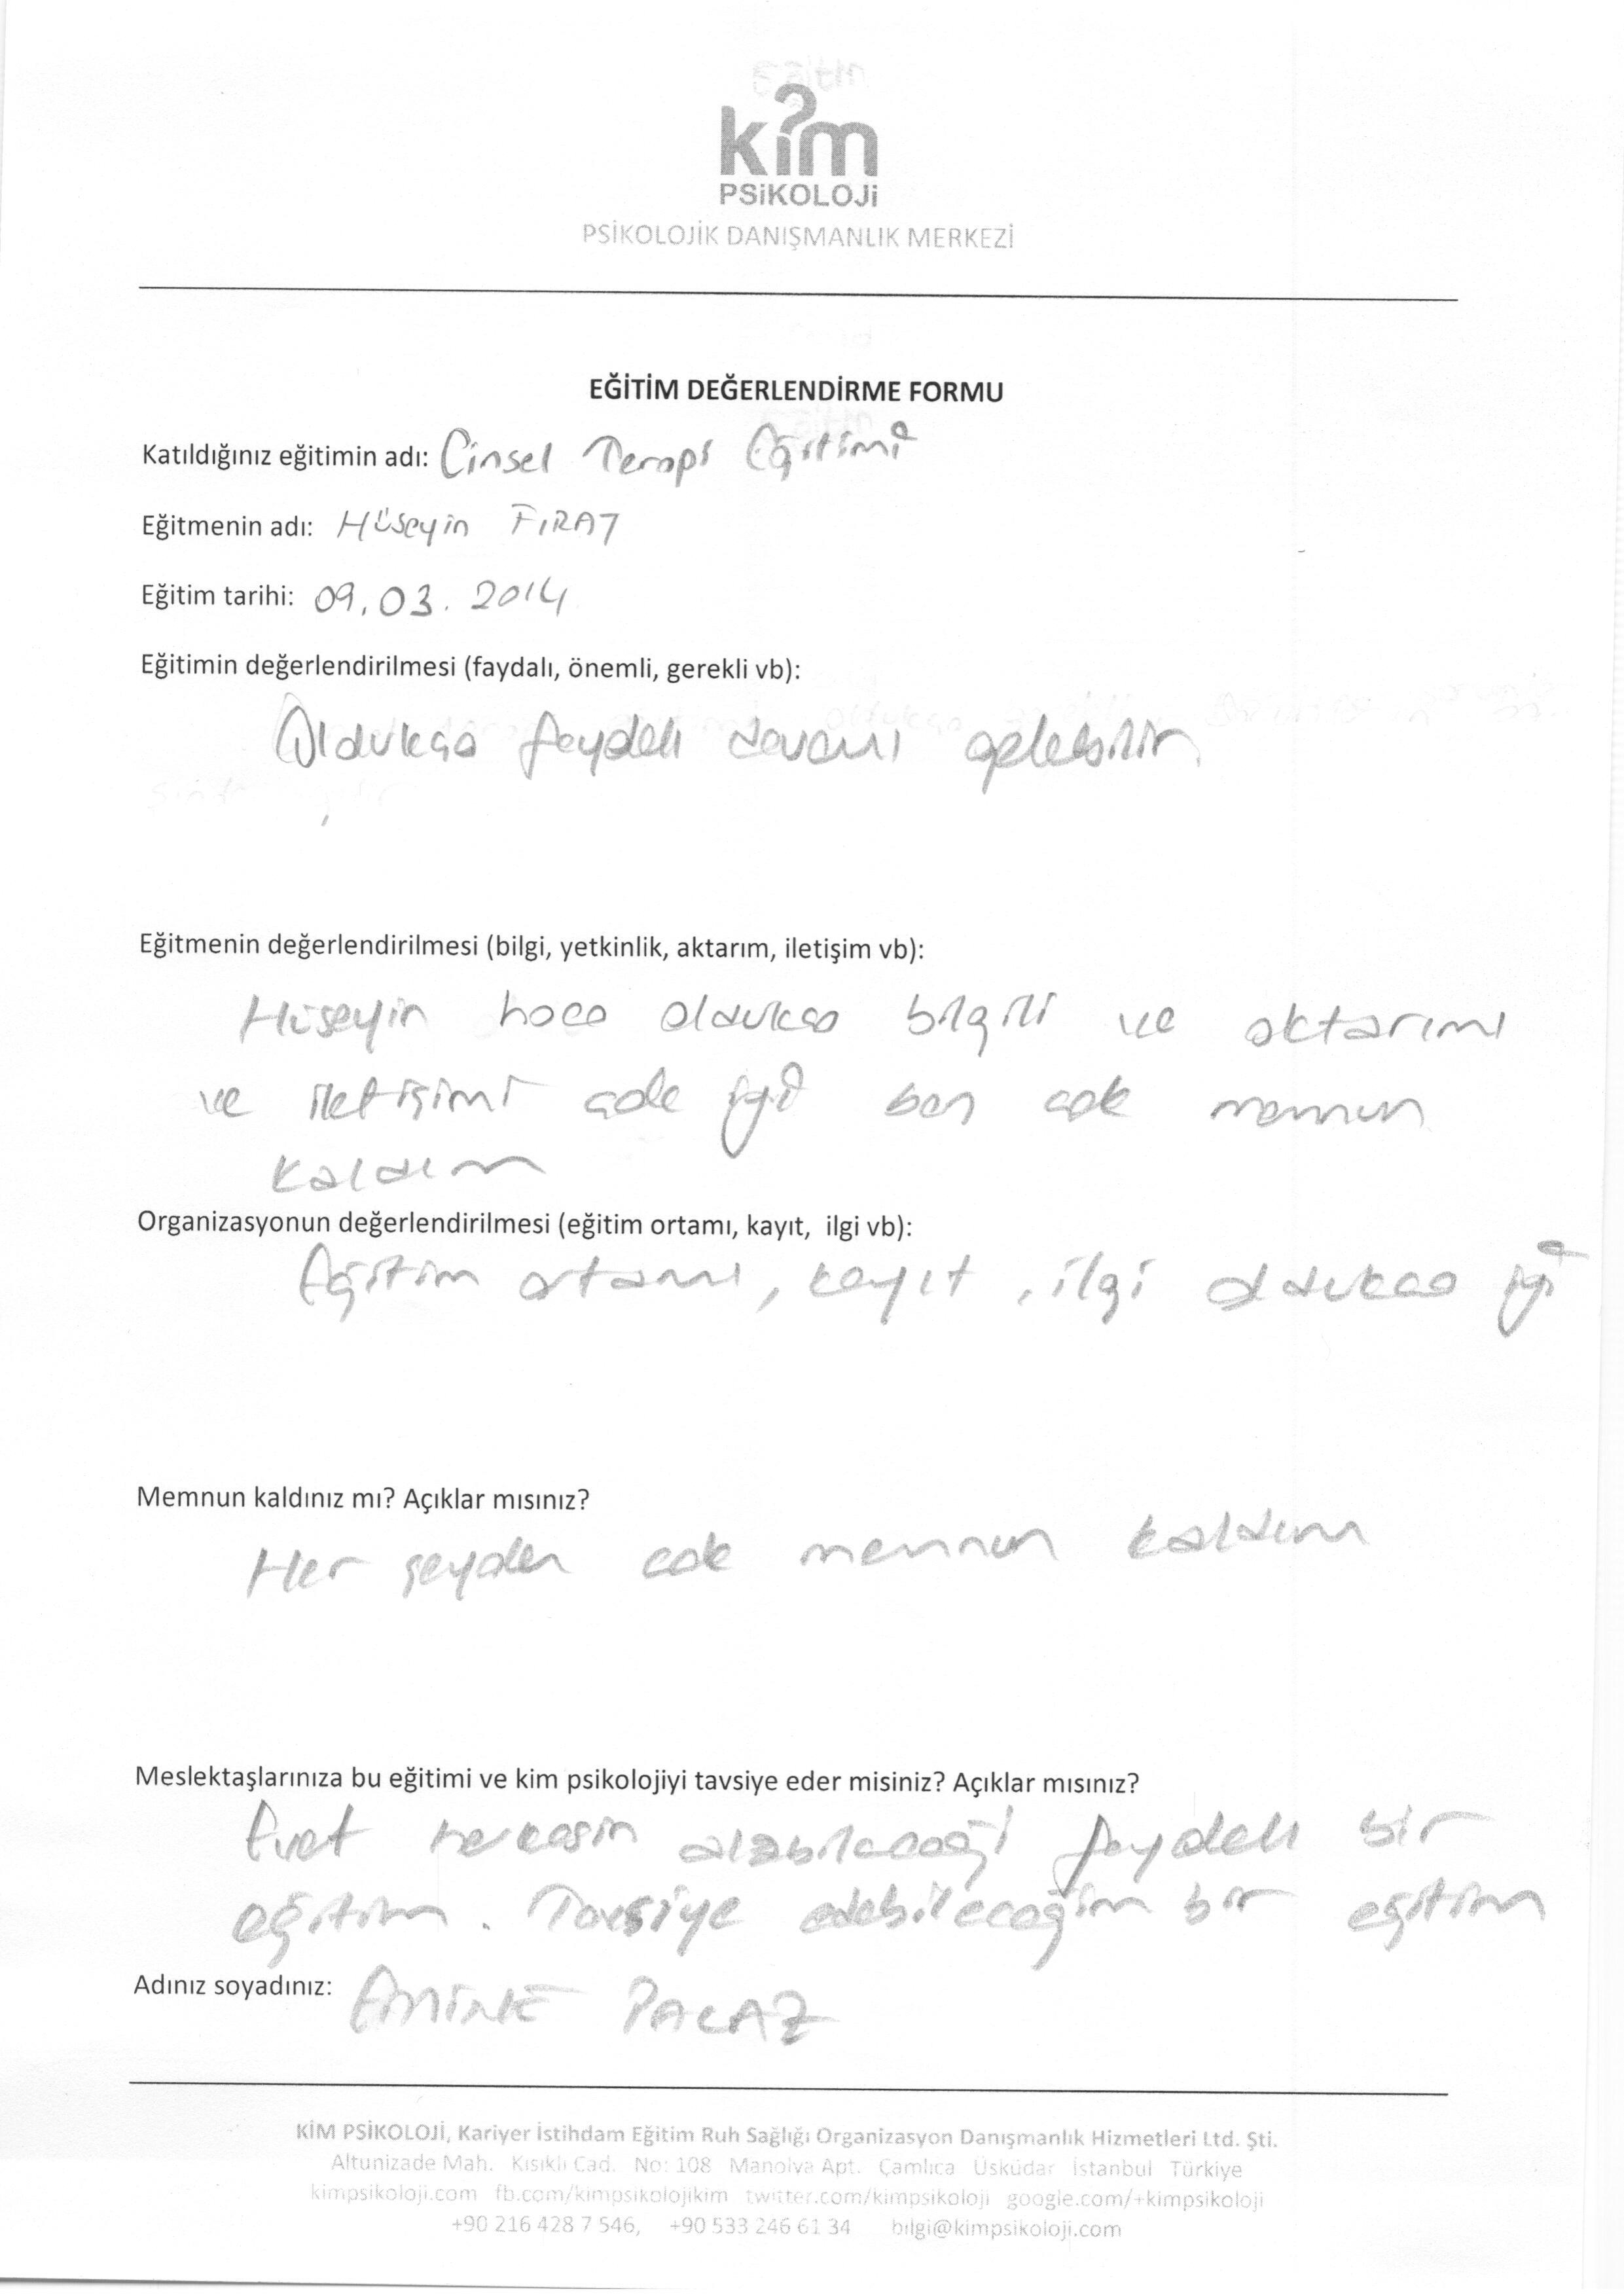 kim
PSiKOLOJi
PSİKOLOJİK DANIŞMANLIK MERKEZİ
EĞİTİM DEĞERLENDİRME FORMU
Katıldığınız eğitimin adı: Cinsel Terapi Eğitimi
Eğitmenin adı: Hüseyin FIRAT
Eğitim tarihi: 09.03.2014
Eğitimin değerlendirilmesi (faydalı, önemli, gerekli vb):
Oldukça faydalı devamı gelebilir.
Eğitmenin değerlendirilmesi (bilgi, yetkinlik, aktarım, iletişim vb):
Hüseyin hoca oldukça bilgili ve aktarımı
ve iletişimi çok iyi ben çok memnun
kaldım
Organizasyonun değerlendirilmesi (eğitim ortamı, kayıt, ilgi vb):
Eğitim ortamı, kayıt, ilgi oldukça iyi
Memnun kaldınız mı? Açıklar mısınız?
Her şeyden çok memnun kaldım
Meslektaşlarınıza bu eğitimi ve kim psikolojiyi tavsiye eder misiniz? Açıklar mısınız?
Evet herkesin alabileceği faydalı bir
eğitim. Tavsiye edebileceğim bir eğitim
Adınız soyadınız: EMİNE PALAZ
KİM PSİKOLOJİ, Kariyer İstihdam Eğitim Ruh Sağlığı Organizasyon Danışmanlık Hizmetleri Ltd. Şti.
Altunizade Mah. Kısıklı Cad. No: 108 Manolya Apt. Çamlıca Üsküdar İstanbul Türkiye
kimpsikoloji.com fb.com/kimpsikolojikim twitter.com/kimpsikoloji google.com/+kimpsikoloji
+90 216 428 7 546, +90 533 246 61 34 bilgi@kimpsikoloji.com